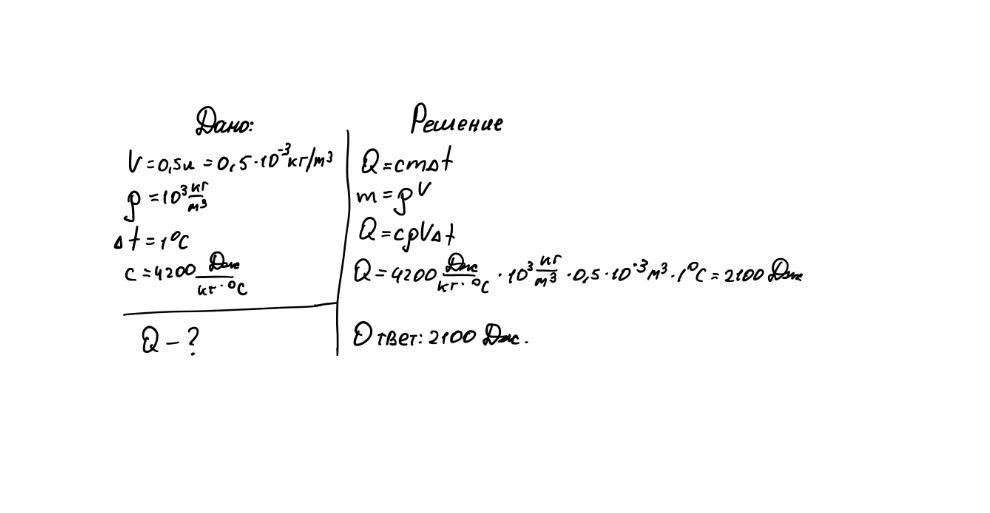 Дано:
V=0,5л = 0,5·10⁻³кг/м³
ρ=10³кг/м³
Δt=1°C
c=4200 Дж/кг·°C
Q-?
Решение
Q=cmΔt
m=ρV
Q=cρVΔt
Q=4200 Дж/кг·°C · 10³ кг/м³ · 0,5·10⁻³м³·1°C=2100 Дж
Ответ: 2100 Дж.